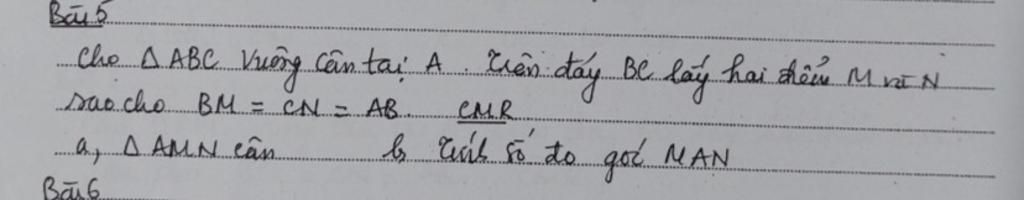 Bài 5
Cho △ ABC vuông cân tại A. Trên đáy BC lấy hai điểm M và N
sao cho BM = CN = AB. CMR
a, △ AMN cân b, Tính số đo góc MAN
Bài 6